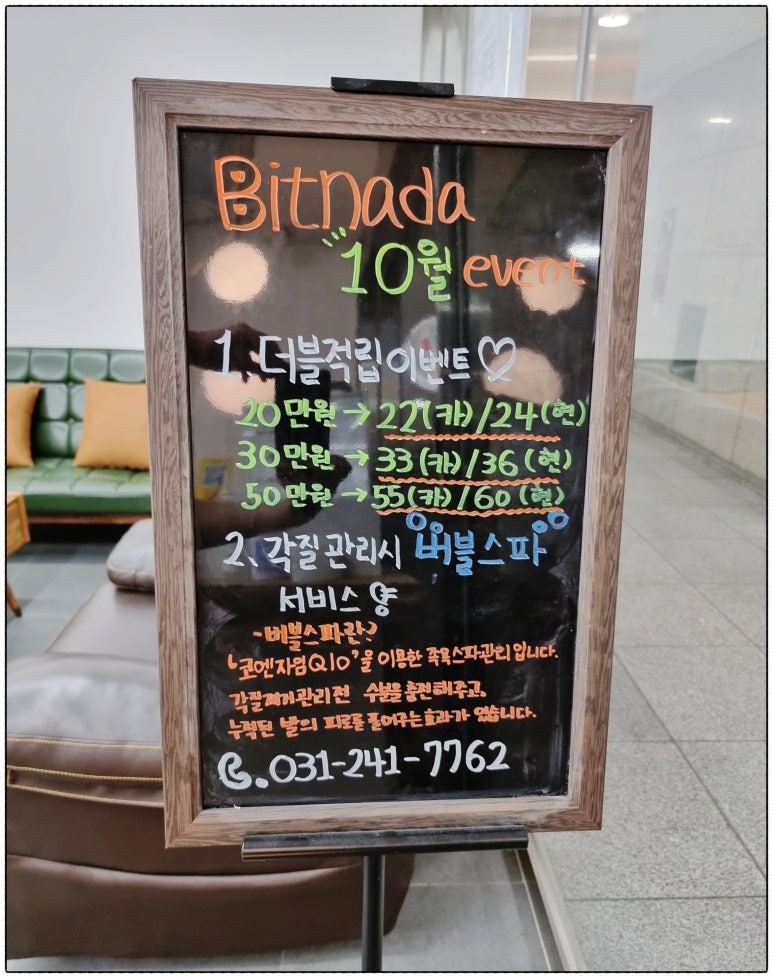 Bitnada
10월 event
1. 더블적립이벤트♡
20만원 → 22(카)/24(현)
30만원 → 33(카)/36(현)
50만원 → 55(카)/60(현)
2. 각질관리시 버블스파
서비스
- 버블스파란?
'코엔자임Q10'을 이용한 족욕스파관리입니다.
각질제거관리전 수분을 충전해주고,
누적된 발의 피로를 풀어주는 효과가 있습니다.
031-241-7762